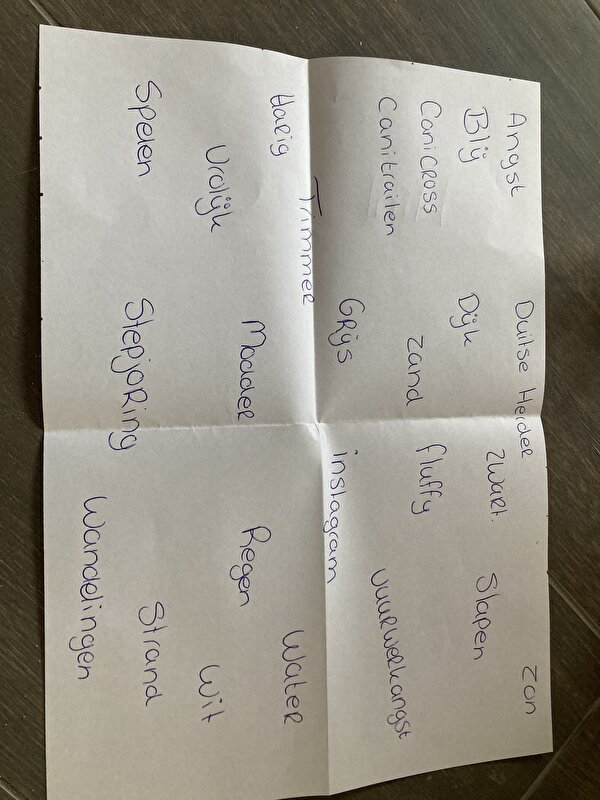 Angst
Duitse Herder
zon
Blij
Dijk
zwart.
Slapen
Canicross
zand
fluffy
Canitrailen
Vuurwerkangst
Grijs
instagram
Trimmer
Harig
Water
Modder
Regen
Vrolijk
Wit
Spelen
Stepjoring
Strand
Wandelingen